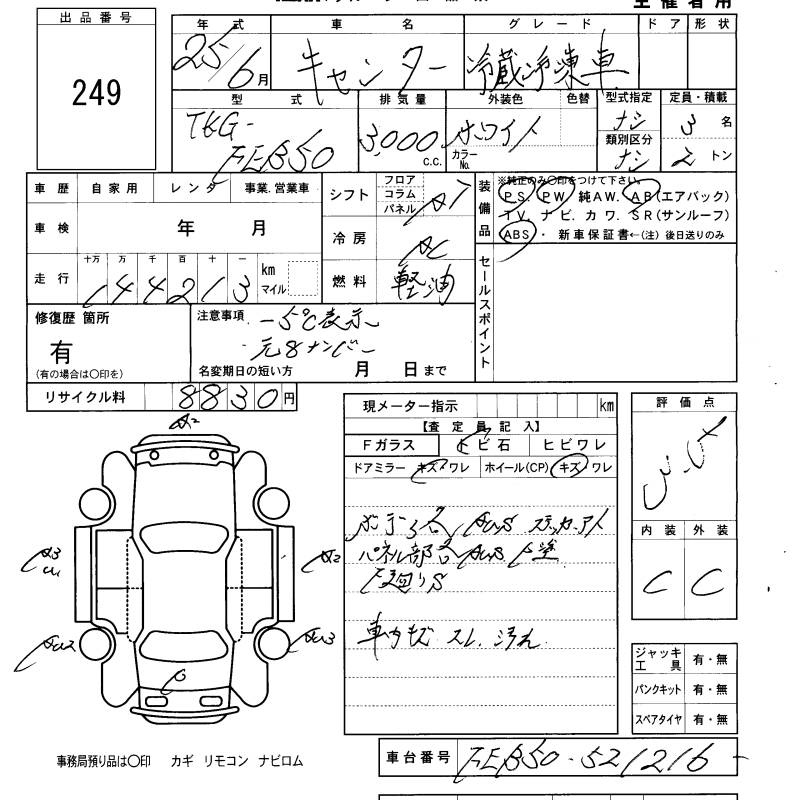 主催者用
出品番号
249
年式 車名 グレード ドア 形状
25/6月 キャンター 冷蔵冷凍車
型式 排気量 外装色 色替 型式指定 定員・積載
TKG-FEB50 3,000 c.c. ホワイト カラーNo. ナシ 3名
類別区分 ナシ 2トン
車歴 自家用 レンタ 事業.営業車
車検 年 月
走行 十万 万 千 百 十 一 km マイル
144213
シフト フロア コラム パネル AT
冷房 AC
燃料 軽油
装備品 ※純正のみ○印をつけて下さい。
PS. PW. 純AW. AB(エアバック)
TV. ナビ. カワ. SR(サンルーフ)
ABS・ 新車保証書←(注) 後日送りのみ
セールスポイント
修復歴 箇所
有
(有の場合は○印を)
注意事項 -5℃表示
元8ナンバー
名変期日の短い方 月 日まで
リサイクル料 8830円
現メーター指示 km
【査定員記入】
Fガラス トビ石 ヒビワレ
ドアミラー キズ・ワレ ホイール(CP) キズ・ワレ
パネル部
F廻りS
評価点
内装 外装
C C
A2
A2
ジャッキ工具 有・無
パンクキット 有・無
スペアタイヤ 有・無
事務局預り品は○印 カギ リモコン ナビロム
車台番号 FEB50-521216